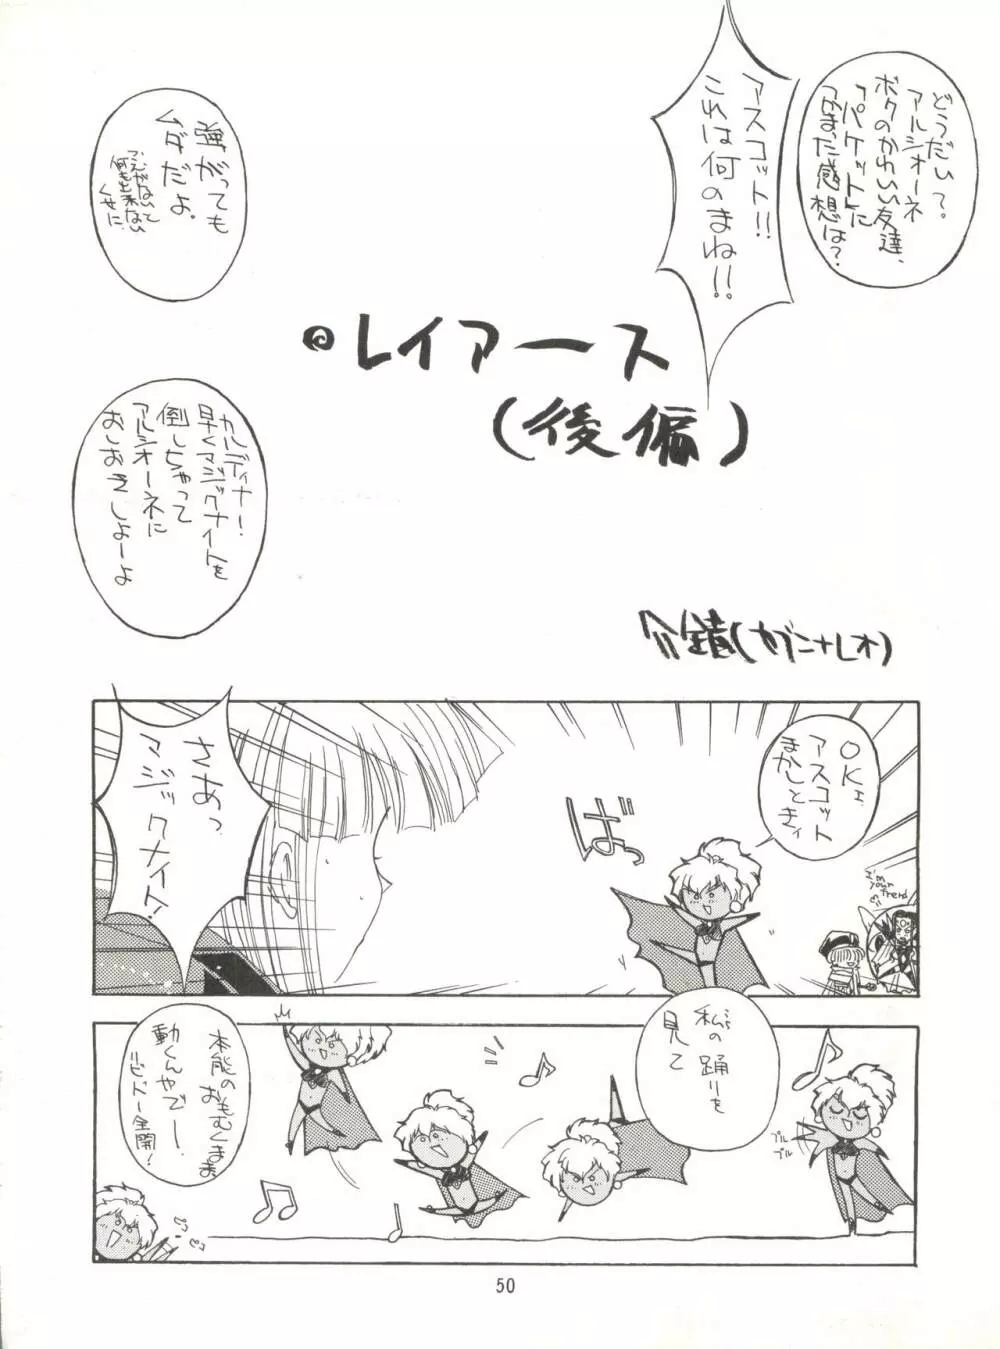 どうだい？。
アルシオーネ
ボクのかわいい友達、
「パケット」に
つかまった感想は？
アスコット!!
これは何のまね!!
強がっても
ムダだよ。
何も出来ない
くせに、
レイアース
(後偏)
カルディナ!
早くマジックナイトを
倒しちゃって
アルシオーネに
おしおきしよーよ
OKェ
アスコット
まかしときィ
ばっ
I'm
your
さあっ
マジックナイト!
私の踊りを
見て
プル
プル
本能のおもむくまま
動くんやでー
リビドー全開!
50